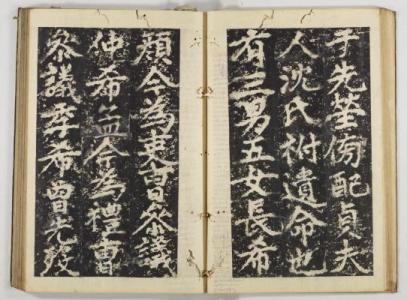 于先塋傍配貞夫
人沈氏祔遺命也
有三男五女長希
顔今為吏曺叅議
仲希孟今為禮曺
叅議季希曾先歿